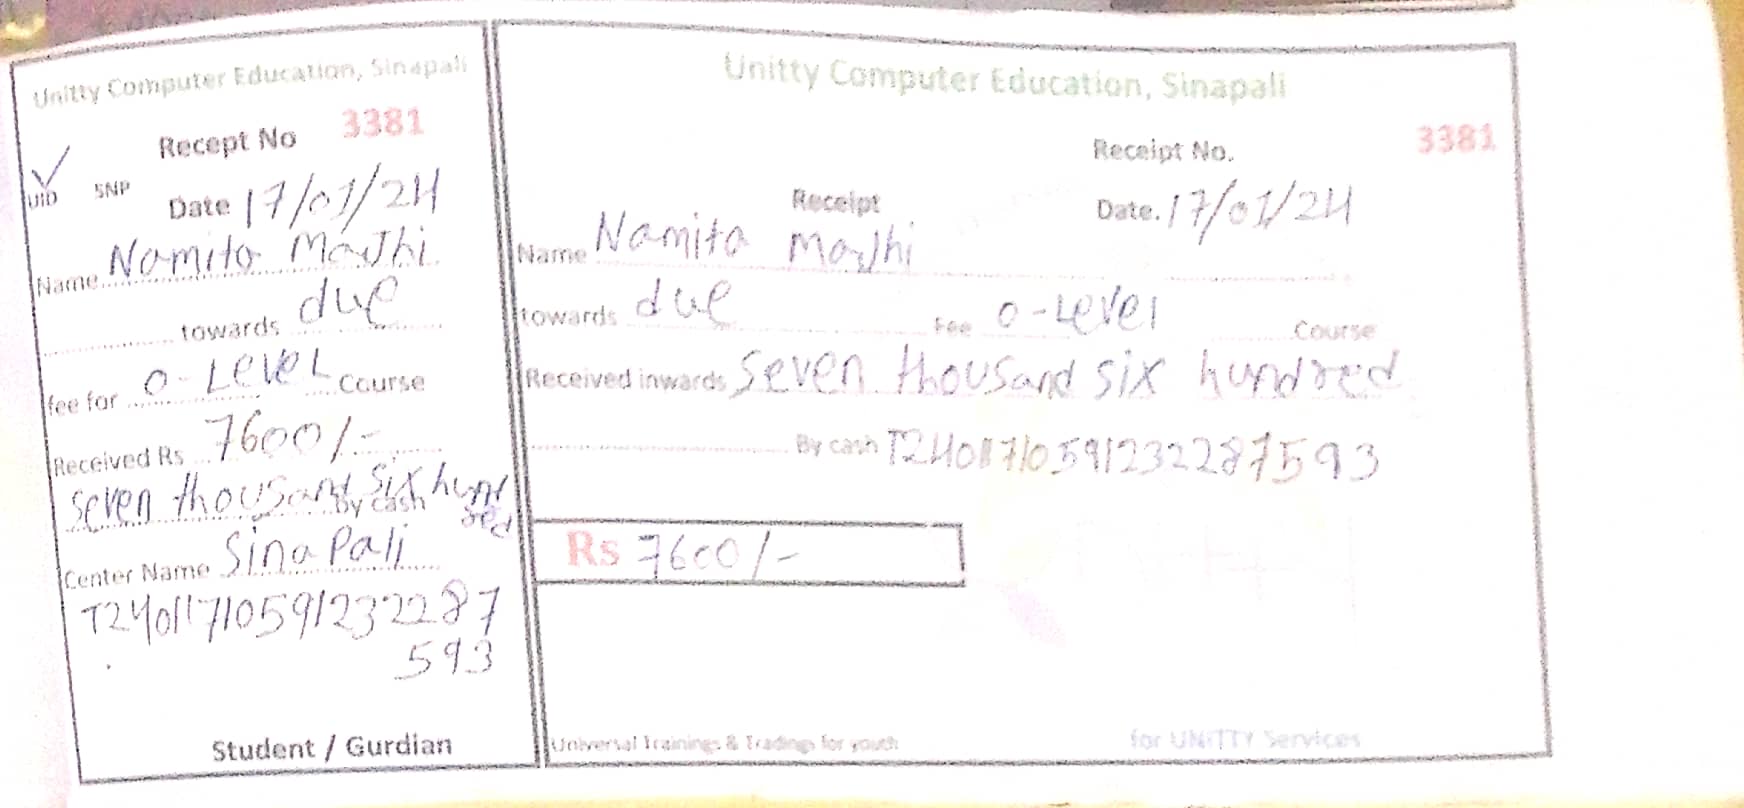 Unitty Computer Education, Sinapali
Recept No 3381
UID SNP
Date 17/01/24
Name Namita Majhi
towards due
fee for O-Level Course
Received Rs 7600/-
seven thousand six hundred
By cash
Center Name Sinapali
T2401171059123228７
593
Student / Gurdian
Unitty Computer Education, Sinapali
Receipt No. 3381
Receipt
Date. 17/01/24
Name Namita Majhi
towards due Fee O-Level Course
Received inwards Seven thousand six hundred
By cash T2401171059123２287593
Rs 7600/-
Universal Trainings & Tradings for youth
for UNITTY Services